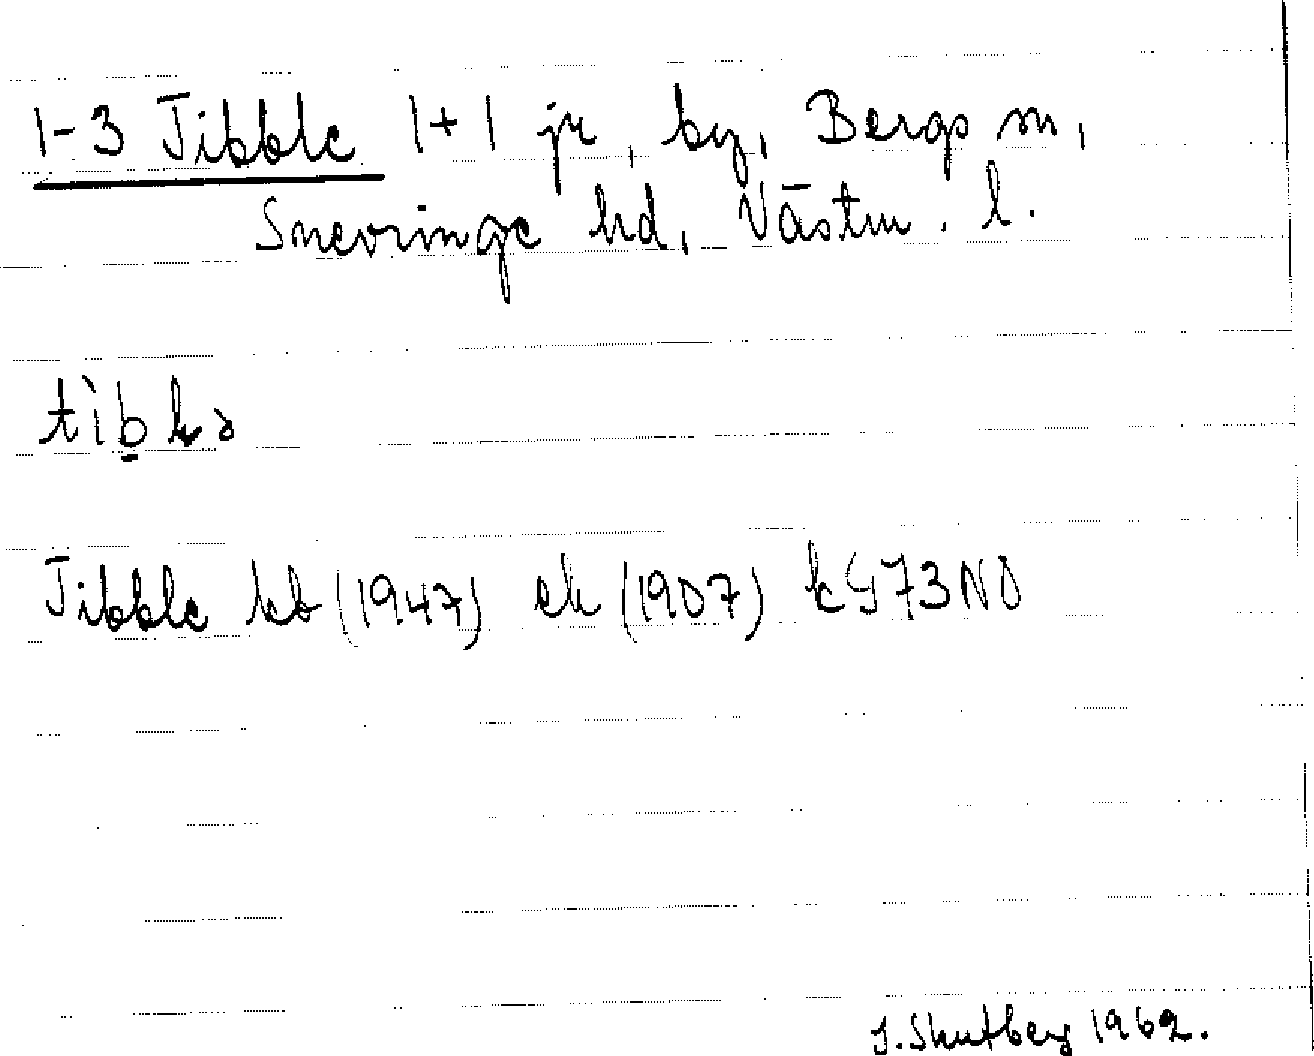 1-3 Tibble 1+1 jr, by, Bergs sn,
Snevringe hd, Västm. l.
Tibble kb (1947) ek (1907) k973NO
1962.